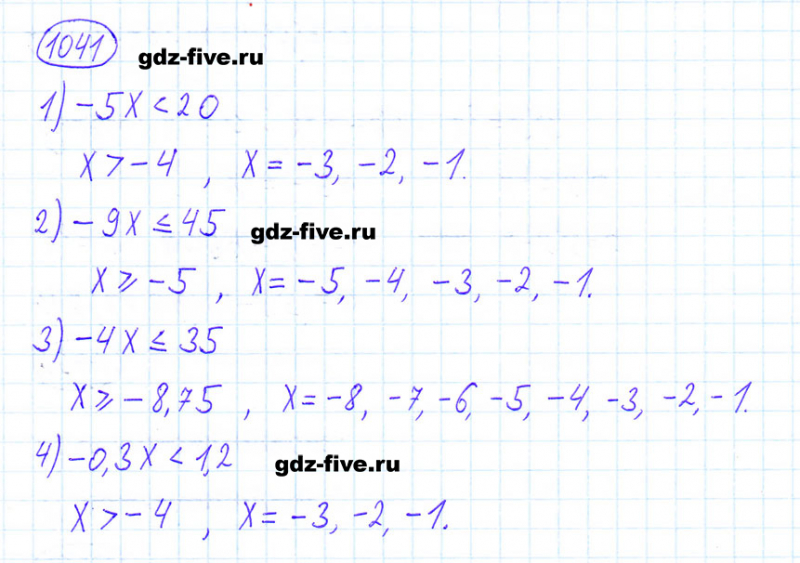 1041 gdz-five.ru
1) -5x < 20
x > -4 , x = -3, -2, -1.
2) -9x ≤ 45 gdz-five.ru
x ≥ -5 , x = -5, -4, -3, -2, -1.
3) -4x ≤ 35
x ≥ -8,75 , x = -8, -7, -6, -5, -4, -3, -2, -1.
4) -0,3x < 1,2 gdz-five.ru
x > -4 , x = -3, -2, -1.